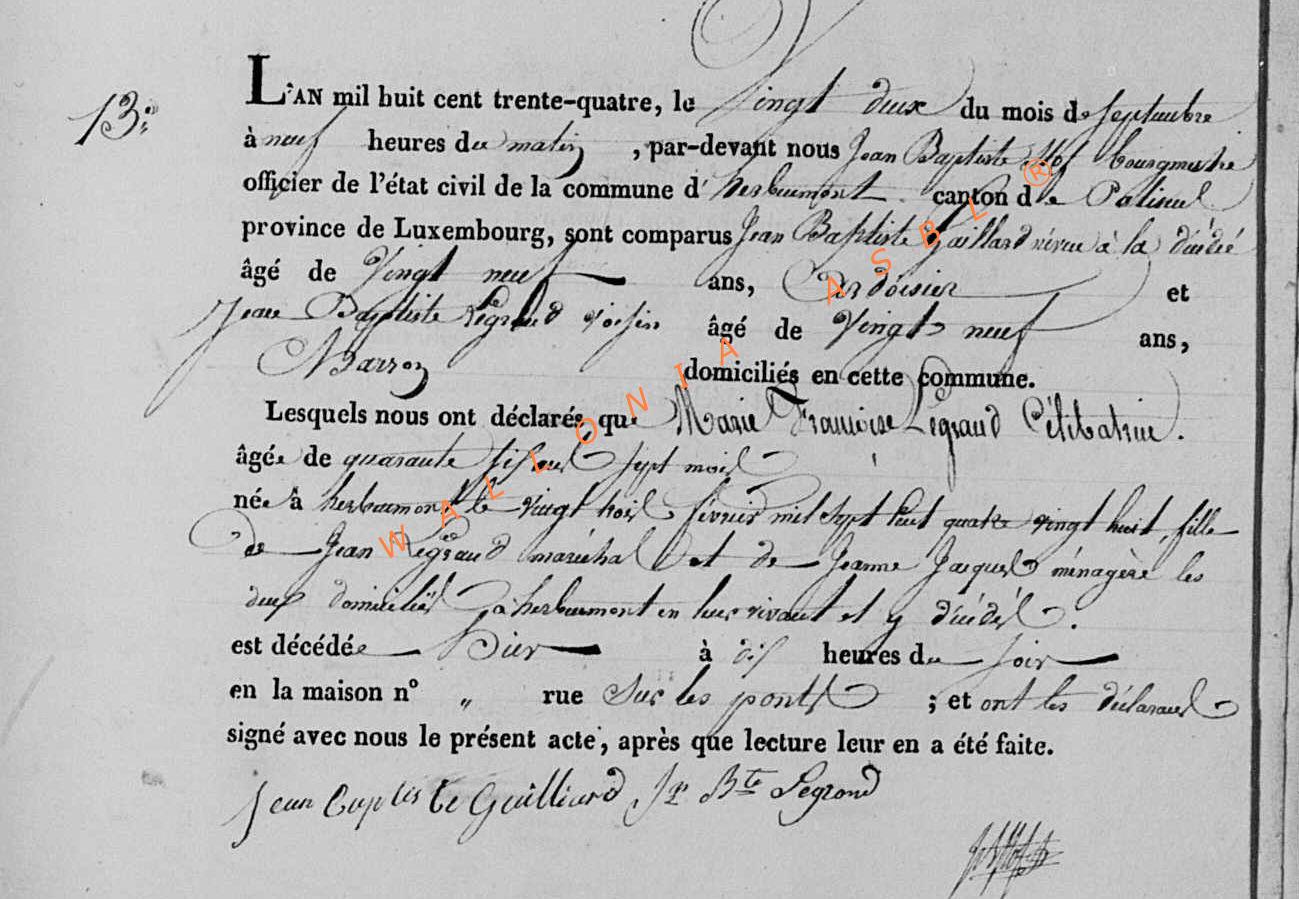 13.e
L'AN mil huit cent trente-quatre, le Vingt deux du mois de septembre
à neuf heures du matin, par-devant nous Jean Baptiste bourgmestre
officier de l'état civil de la commune d'herbeumont canton de Paliseul
province de Luxembourg, sont comparus Jean Baptiste Gaillard neveu à la décédée
âgé de Vingt neuf ans, Ardoisier et
Jean Baptiste Legrand voisin âgé de Vingt neuf ans,
Marron domiciliés en cette commune.
Lesquels nous ont déclarés que Marie Françoise Legrand Célibataire.
âgée de quarante six ans sept mois
née à herbeumont le vingt trois février mil sept cent quatre vingt huit, fille
de Jean Legrand maréchal et de Jeanne Jacques ménagère les
deux domiciliés à herbeumont en leur vivant et y décédés.
est décédée hier à dix heures du soir
en la maison n° „ rue Sur les ponts ; et ont les déclarans
signé avec nous le présent acte, après que lecture leur en a été faite.
Jean Baptiste Guilliard Jn Bte Legrand
WALLONIA ASBL ®